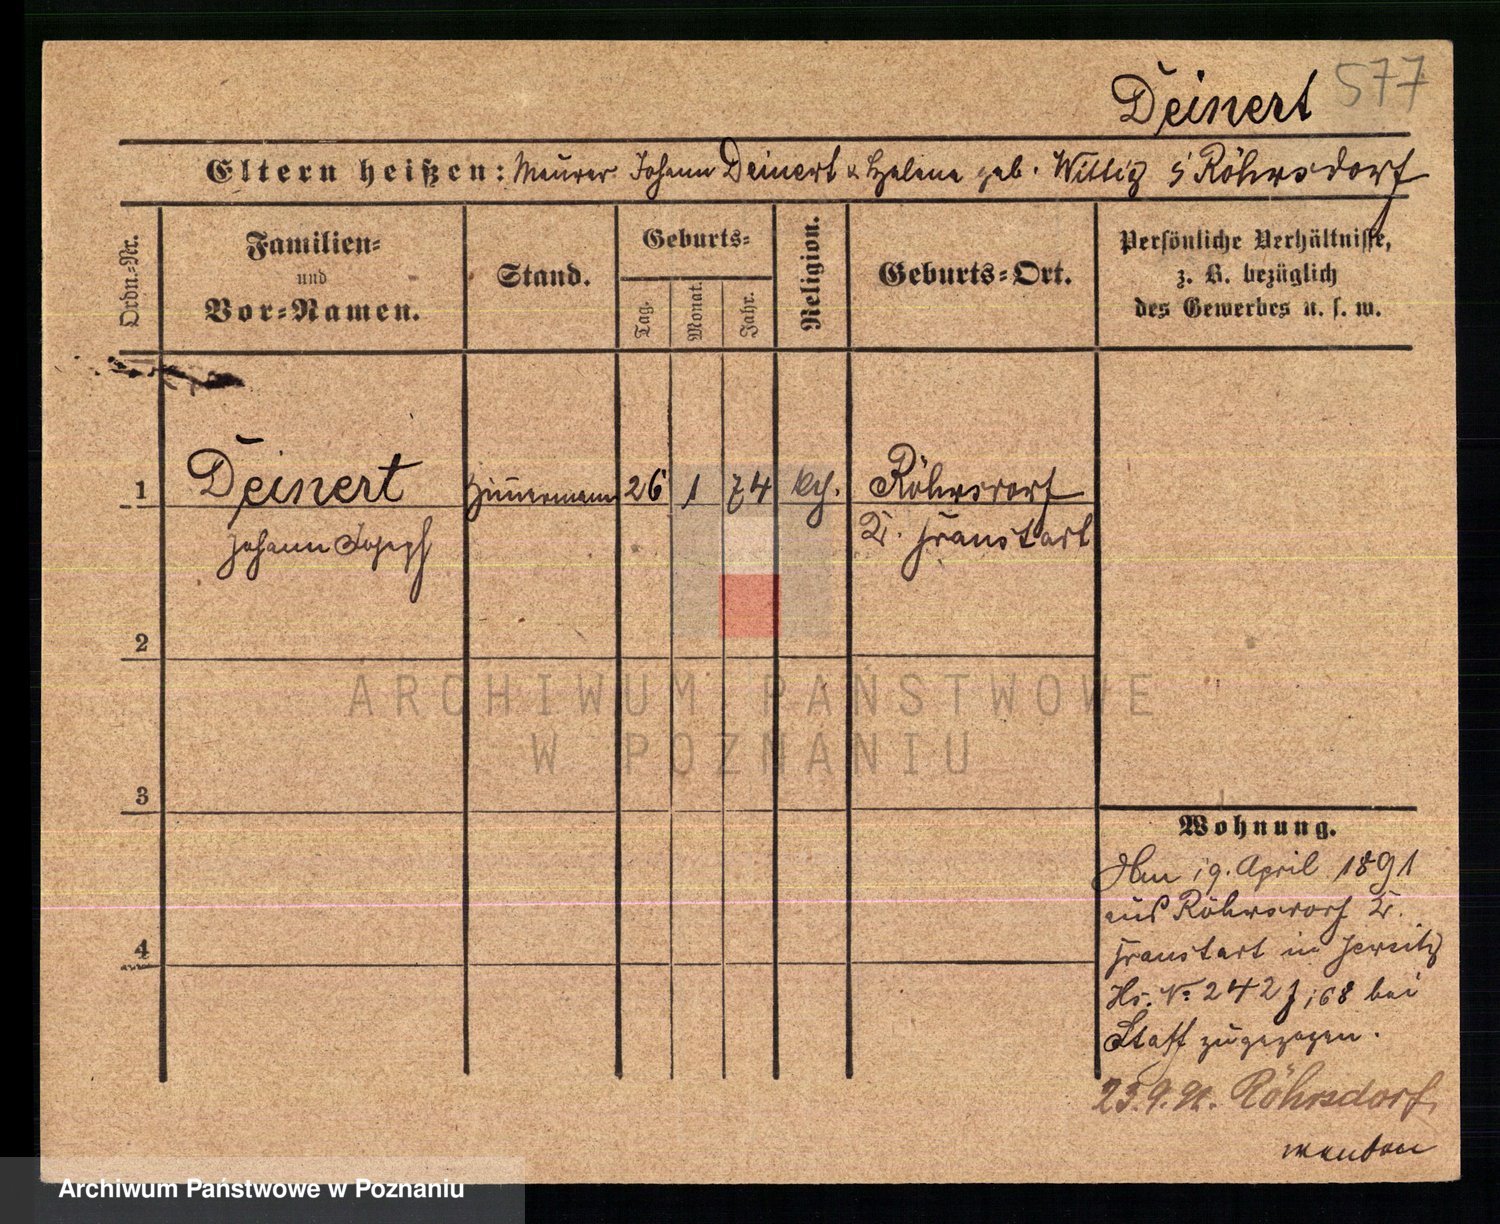 577
Deinert
Eltern heißen: Maurer Johann Deinert & Helene geb. Wittig Röhrsdorf
Ordn.-Nr.
Familien-
und
Vor-Namen.
Stand.
Geburts-
Tag.
Monat.
Jahr.
Religion.
Geburts-Ort.
Persönliche Verhältnisse,
z. B. bezüglich
des Gewerbes u. s. w.
1 Deinert Zimmermann 26 1 74 Röhrsdorf
Johann Joseph Kr. Fraustadt
2
ARCHIWUM PAŃSTWOWE
W POZNANIU
3
Wohnung.
Am 19. April 1891
aus Röhrsdorf Kr.
4
Fraustadt in Jersitz
Hs. No 242 bei
zugezogen.
23.9.91. Röhrsdorf
Archiwum Państwowe w Poznaniu